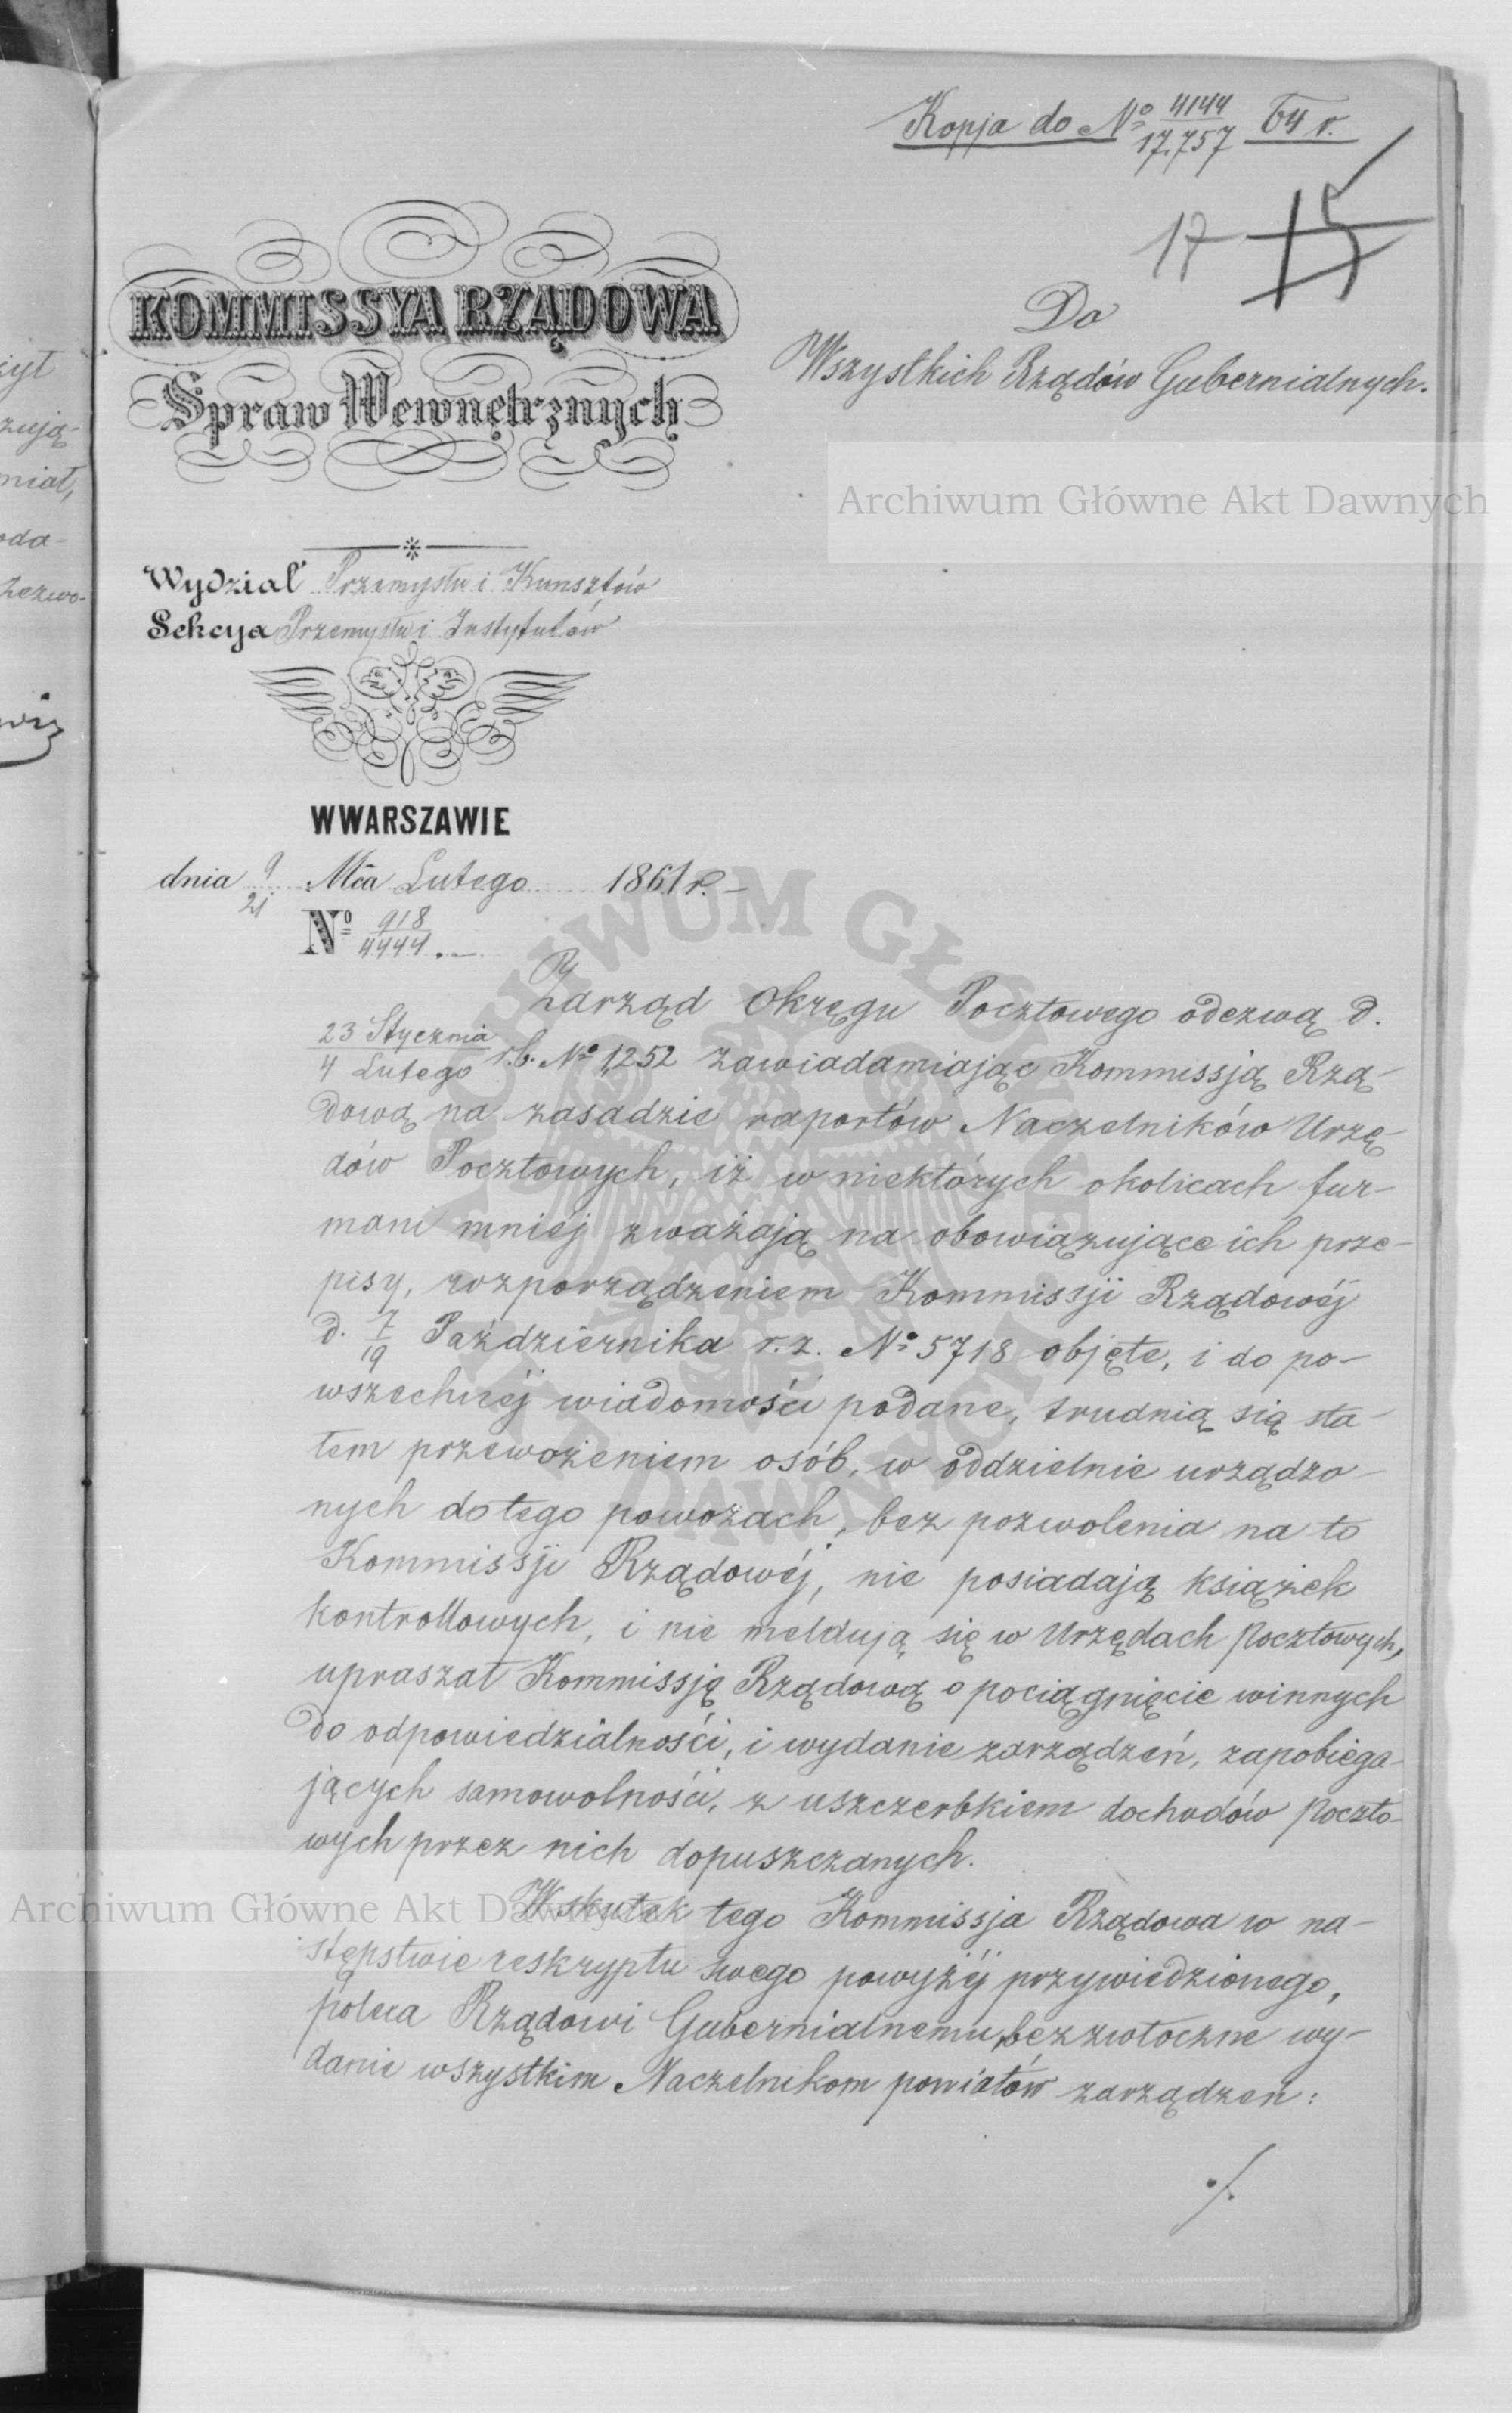 Kopja do № 4144/17.757 64 r.
17 15
KOMMISSYA RZĄDOWA
Spraw Wewnętrznych
Do
Wszystkich Rządów Gubernialnych.
Archiwum Główne Akt Dawnych
Wydział Przemysłu i Kunsztów
Sekcya Przemysłu i Instytutów
W WARSZAWIE
dnia 9/21 Mca Lutego 1861 r.
№ 918/4444
Zarząd Okręgu Pocztowego odezwą d.
23 Stycznia/4 Lutego r.b. № 1,252 zawiadamiając Kommissją Rzą-
dową na zasadzie raportów Naczelników Urzę-
dów Pocztowych, iż w niektórych okolicach fur-
mani mniéj zważają na obowiązujące ich prze-
pisy, rozporządzeniem Kommissji Rządowéj
d. 7/19 Października r.z. № 5718 objęte, i do po-
wszechnéj wiadomości podane, trudnią się sta-
łem przewożeniem osób, w oddzielnie urządzo-
nych do tego powozach, bez pozwolenia na to
Kommissji Rządowéj, nie posiadają książek
kontrollowych, i nie meldują się w Urzędach Pocztowych,
upraszał Kommissję Rządową o pociągnięcie winnych
do odpowiedzialności, i wydanie zarządzeń, zapobiega-
jących samowolności, z uszczerbkiem dochodów Poczto-
wych przez nich dopuszczanych.
Archiwum Główne Akt Dawnych
Wskutek tego Kommissja Rządowa w na-
stępstwie reskryptu swego powyżéj przywiedzionego,
poleca Rządowi Gubernialnemu, bezzwłoczne wy-
danie wszystkim Naczelnikom powiatów zarządzeń:
./.